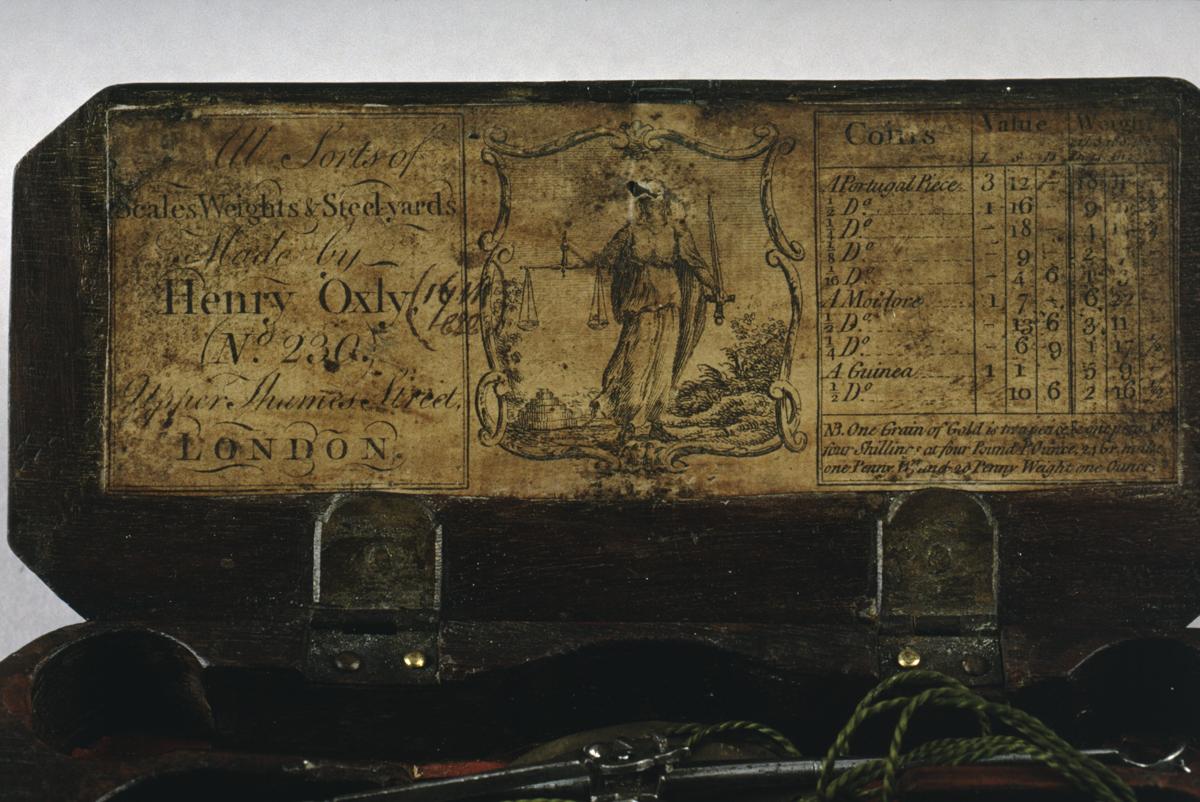 All Sorts of
Scales Weights & Steel-yards
Made by
Henry Oxly,
(No. 230.)
Upper Thames Street,
LONDON.
Coins Value Weight
A Portugal Piece 3 12 – 18
½ Do. 1 16 9
¼ Do. – 18 – 4
⅛ Do. – 9 – 2
1/16 Do. – 4 6 1
A Moidore 1 7 – 6 22
½ Do. – 13 6 3 11
¼ Do. – 6 9 1 17
A Guinea 1 1 – 5 9
½ Do. 10 6 2 16 ½
NB. One Grain of Gold is two pence
four Shillings at four Pound P Ounce, 24 Gr. make
one Penny Wt. and 20 Penny Weight one Ounce